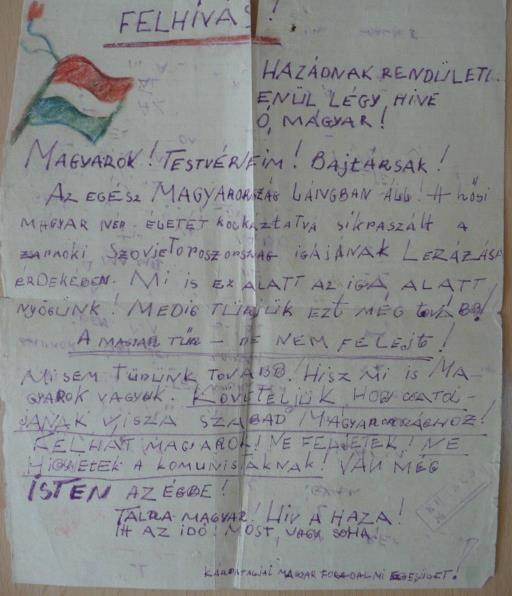 FELHÍVÁS!
HAZÁDNAK RENDÜLETL-
ENÜL LÉGY HIVE
Ó, MAGYAR!
MAGYAROK! TESTVÉREIM! BAJTÁRSAK!
AZ EGÉSZ MAGYARORSZÁG LÁNGBAN ÁLL! A HŐSI
MAGYAR NÉP ÉLETÉT KOCKÁZTATVA SIKRASZÁLT A
ZSARNOKI SZOVJETOROSZORSZÁG IGÁJÁNAK LERÁZÁSA
ÉRDEKÉBEN. MI IS EZ ALATT AZ IGA ALATT
NYÖGÜNK! MEDIG TÜRJÜK EZT MÉG TOVÁBB!
A MAGYAR TÜR – DE NEM FELEJT!
MI SEM TÜRÜNK TOVÁBB! HISZ MI IS MA-
GYAROK VAGYUK. KÖVETELJÜK HOGY CSATOL-
JANAK VISZA SZABAD MAGYARORSZÁGHOZ!
FELHÁT MAGYAROK! NE FÉLJETEK! NE
HIGYJETEK A KOMUNISTÁKNAK! VAN MÉG
ISTEN AZ ÉGBE!
TALPRA MAGYAR! HIV A HAZA!
ITT AZ IDŐ! MOST, VAGY SOHA!
KÁRPÁTALJAI MAGYAR FORRADALMI EGYESÜLET!